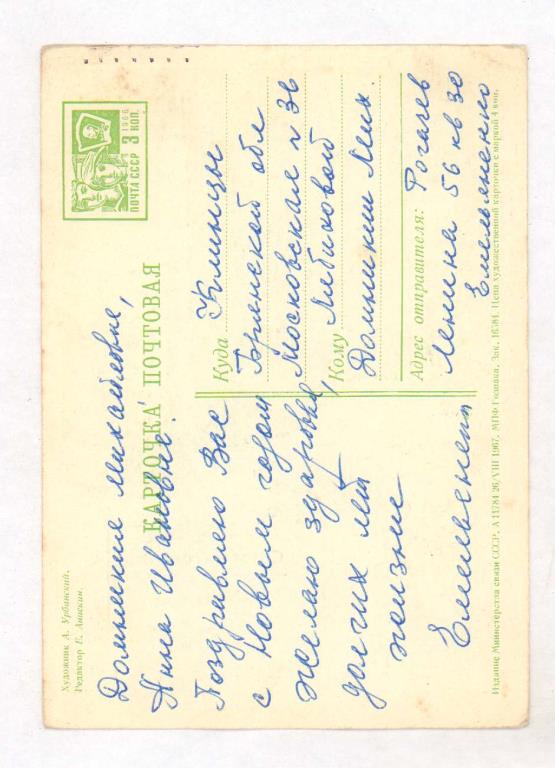 Художник А. Урбанский.
Редактор Е. Анискин.
КАРТОЧКА ПОЧТОВАЯ
1966
3 КОП.
ПОЧТА СССР
Домникия Михайловна,
Анна Ивановна!
Поздравляю Вас
с Новым годом
желаю здаровья,
долгих лет
жизни
Емельяненки
Куда Клинцы
Брянской обл
Московская 36
Кому
Домникии Мих.
Адрес отправителя: Рогачев
Ленина 56 кв 30
Емельяненко
Издание Министерства связи СССР. А 11784 26/VIII 1967. МПФ Гознака. Зак. 16784. Цена художественной карточки с маркой 4 коп.